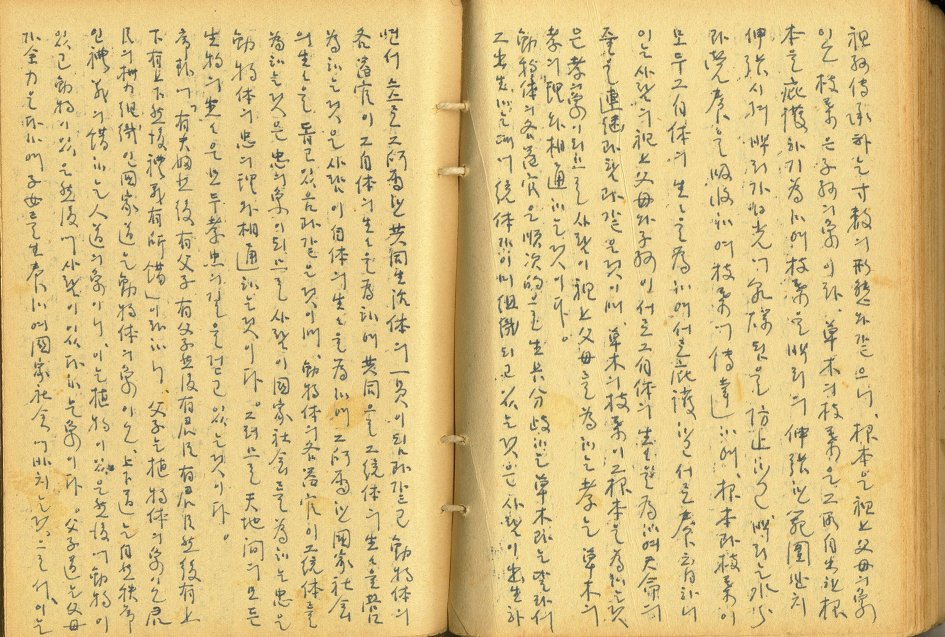 祖孫傳承하는 寸數의 形態와 같으니, 根本은 祖上父母의 象
이오 枝葉은 子孫의 象이라. 草木의 枝葉은 그 所自生한 根
本을 庇護하기 爲하여 枝葉을 뿌리의 伸張한 範圍까지
伸張시켜 뿌리가 나 을 防止하고 뿌리는 水分
과 營養을 吸收하여 枝葉에 傳達하여, 根本과 枝葉이
모두 그 自體의 生을 爲하여 서로 庇護하고 서로 養育하니
이는 사람의 祖上父母와 子孫이 서로 그 自體의 生 을 爲하여 天命의
을 連繼함과 같은 것이며 草木의 枝葉이 그 根本을 爲하는 것
은 孝의 象이 되므로 사람이 祖上父母를 爲하는 孝는 草木의
孝의 理와 相通하는 것이다.
動物體의 各器官은 順次的으로 生長分岐하는 草木과는 달라서
그 出生하는 때에 統體가 이미 組織되고 있는 것은 사람이 出生하
면서 으로 그 所屬한 共同生活體의 一員이 됨과 같고 動物體의
各器官이 그 自體의 生을 爲하며 共同으로 그 統體의 生을 營
爲하는 것은 사람이 自體의 生을 爲하며 그 所屬한 國家社會
의 生을 돕고 있음과 같은 것이며, 動物體의 各器官이 그 統體를
爲하는 것은 忠의 象이 되므로 사람이 國家社會를 爲하는 忠은
動物體의 忠의 理와 相通하는 것이다. 그러므로 天地間의 모든
生物의 生은 모두 孝忠의 길을 걷고 있는 것이다.
序卦에 「有夫婦然後有父子 有父子然後有君臣 有君臣然後有上
下 有上下然後禮義有所錯」이라 하니 父子는 植物體의 象이오 君
臣의 組織인 國家 는 動物體의 象이오, 上下 는 自然秩序
인 禮義의 錯하는 人道의 象이니, 이는 植物이 있은 然後에 動物이
있고 動物이 있은 然後에 사람이 있다 하는 象이다. 父子 는 父母
가 全力을 다하여 子女를 生養하여 國家社會에 바치는 것으로서, 이는